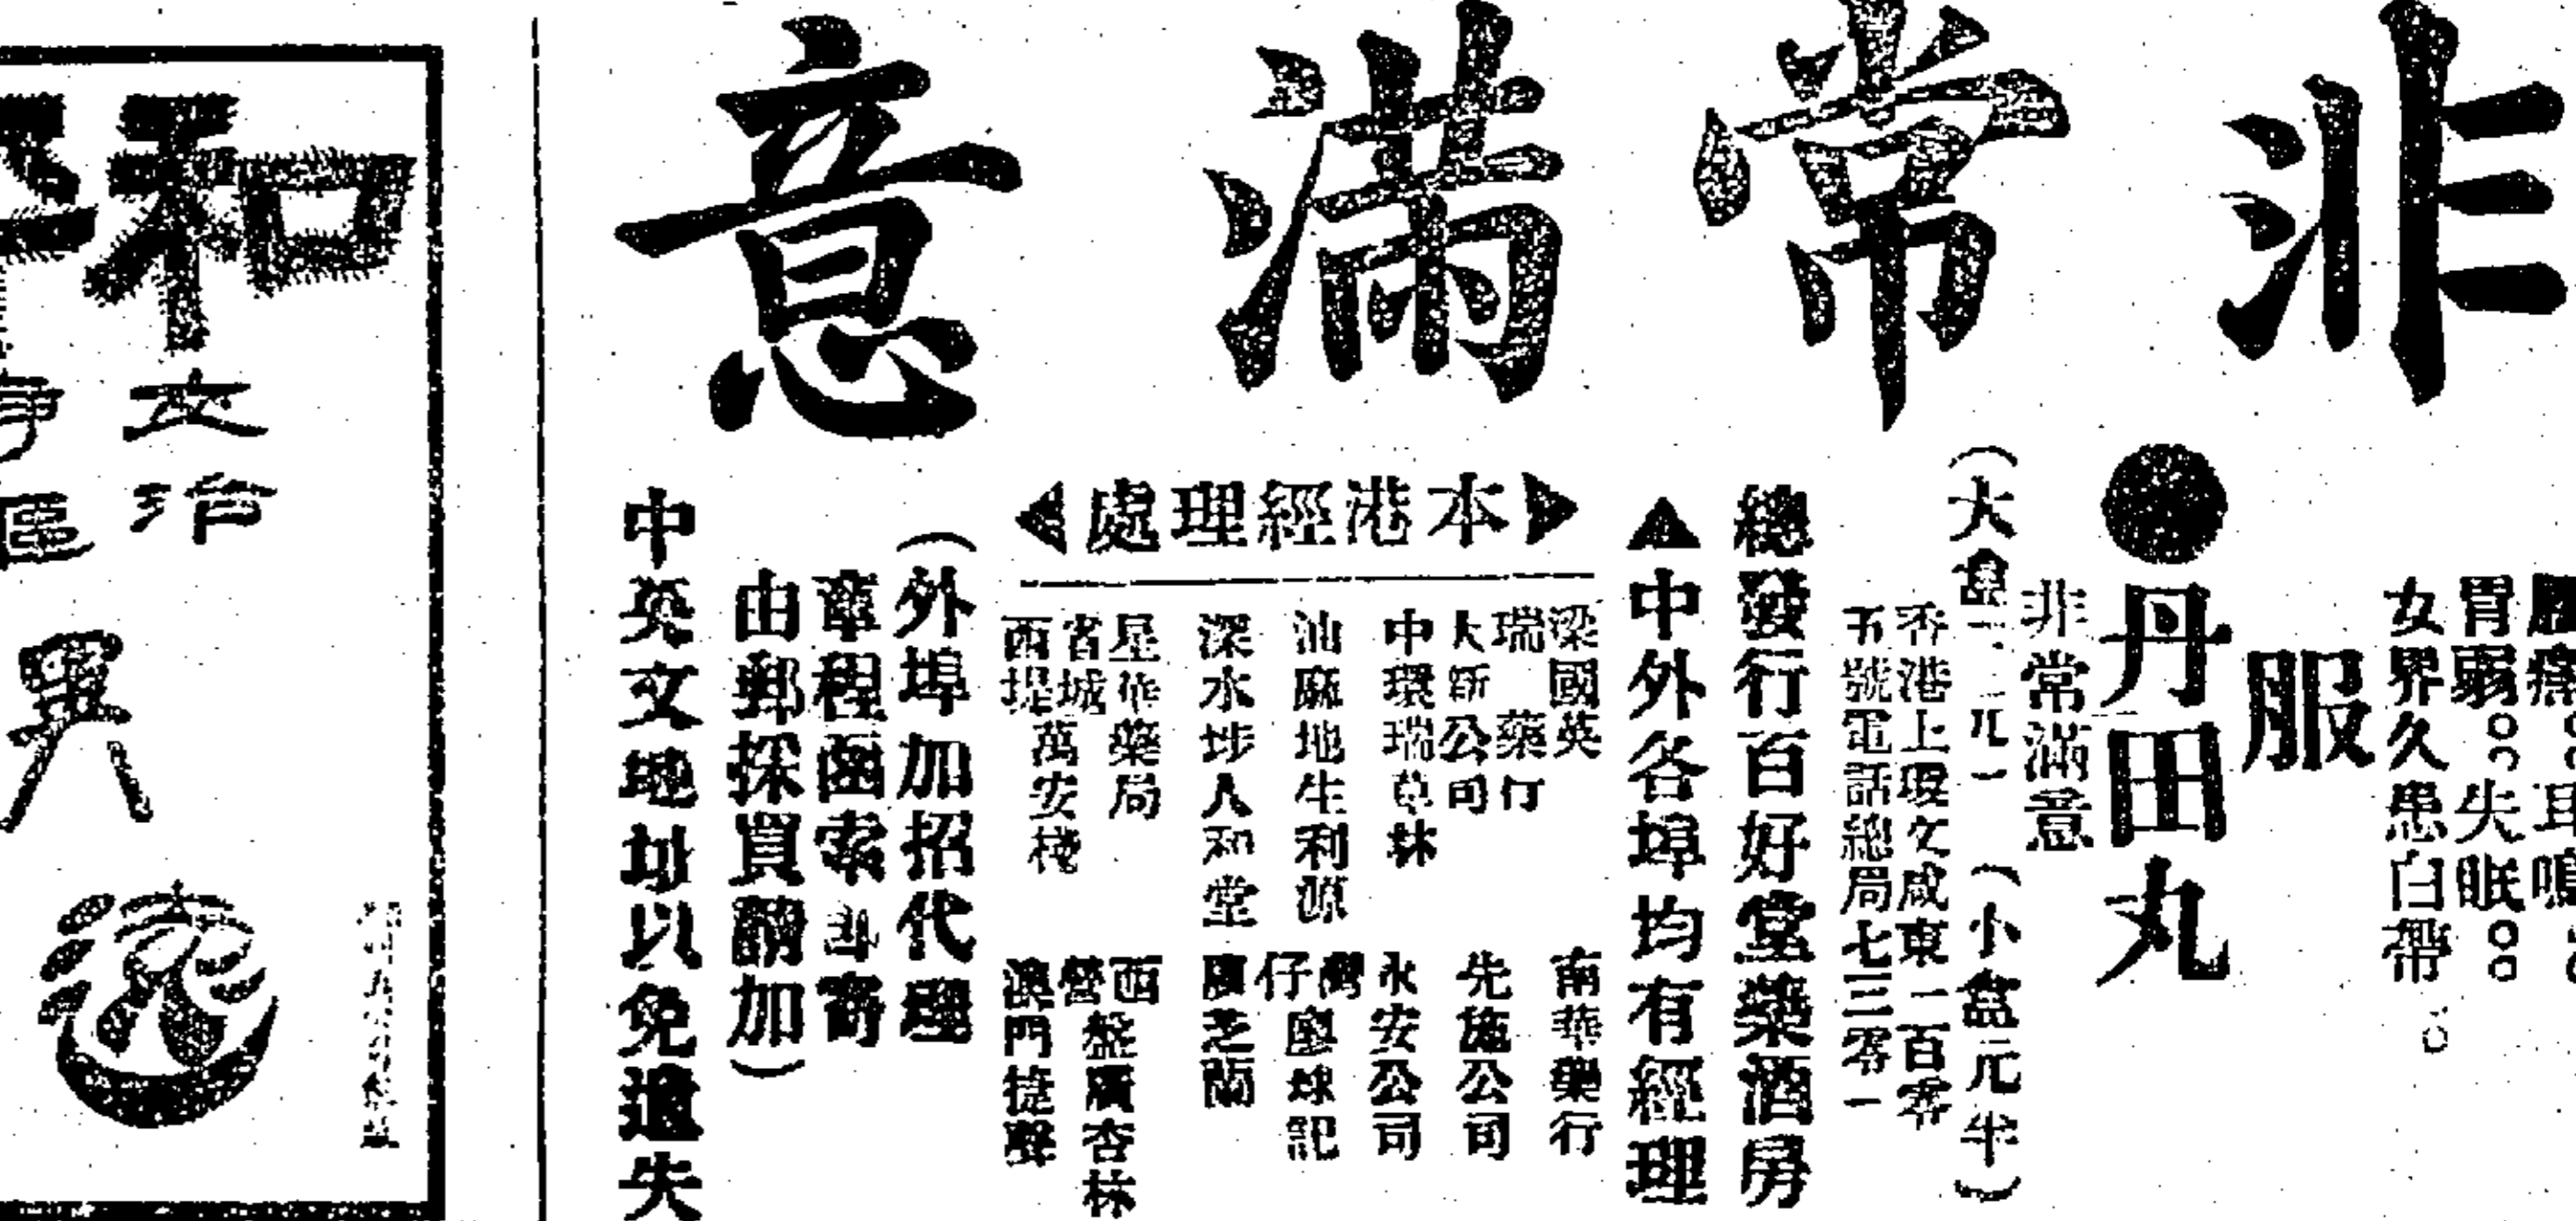 非常滿意
女界久患白帶
胃弱。。失眠。。
服
●丹田丸
非常滿意
(小盒元半)
香港上環文咸東一百零
五號電話總局七三零一
總發行百好堂藥酒房
▲中外各埠均有經理
本港經理處
梁國英
瑞 藥行
大新公司
中環瑞草林
油麻地生利源
深水埗人和堂
星作藥局
省城
西堤
萬安棧
南華藥行
先施公司
永安公司
灣仔廖球記
廣芝蘭
西營盤廣杏林
澳門捷聲
(外埠加招代理
章程函索即寄
由郵採買
加)
中英文地址以免遺失
和
文
治
異